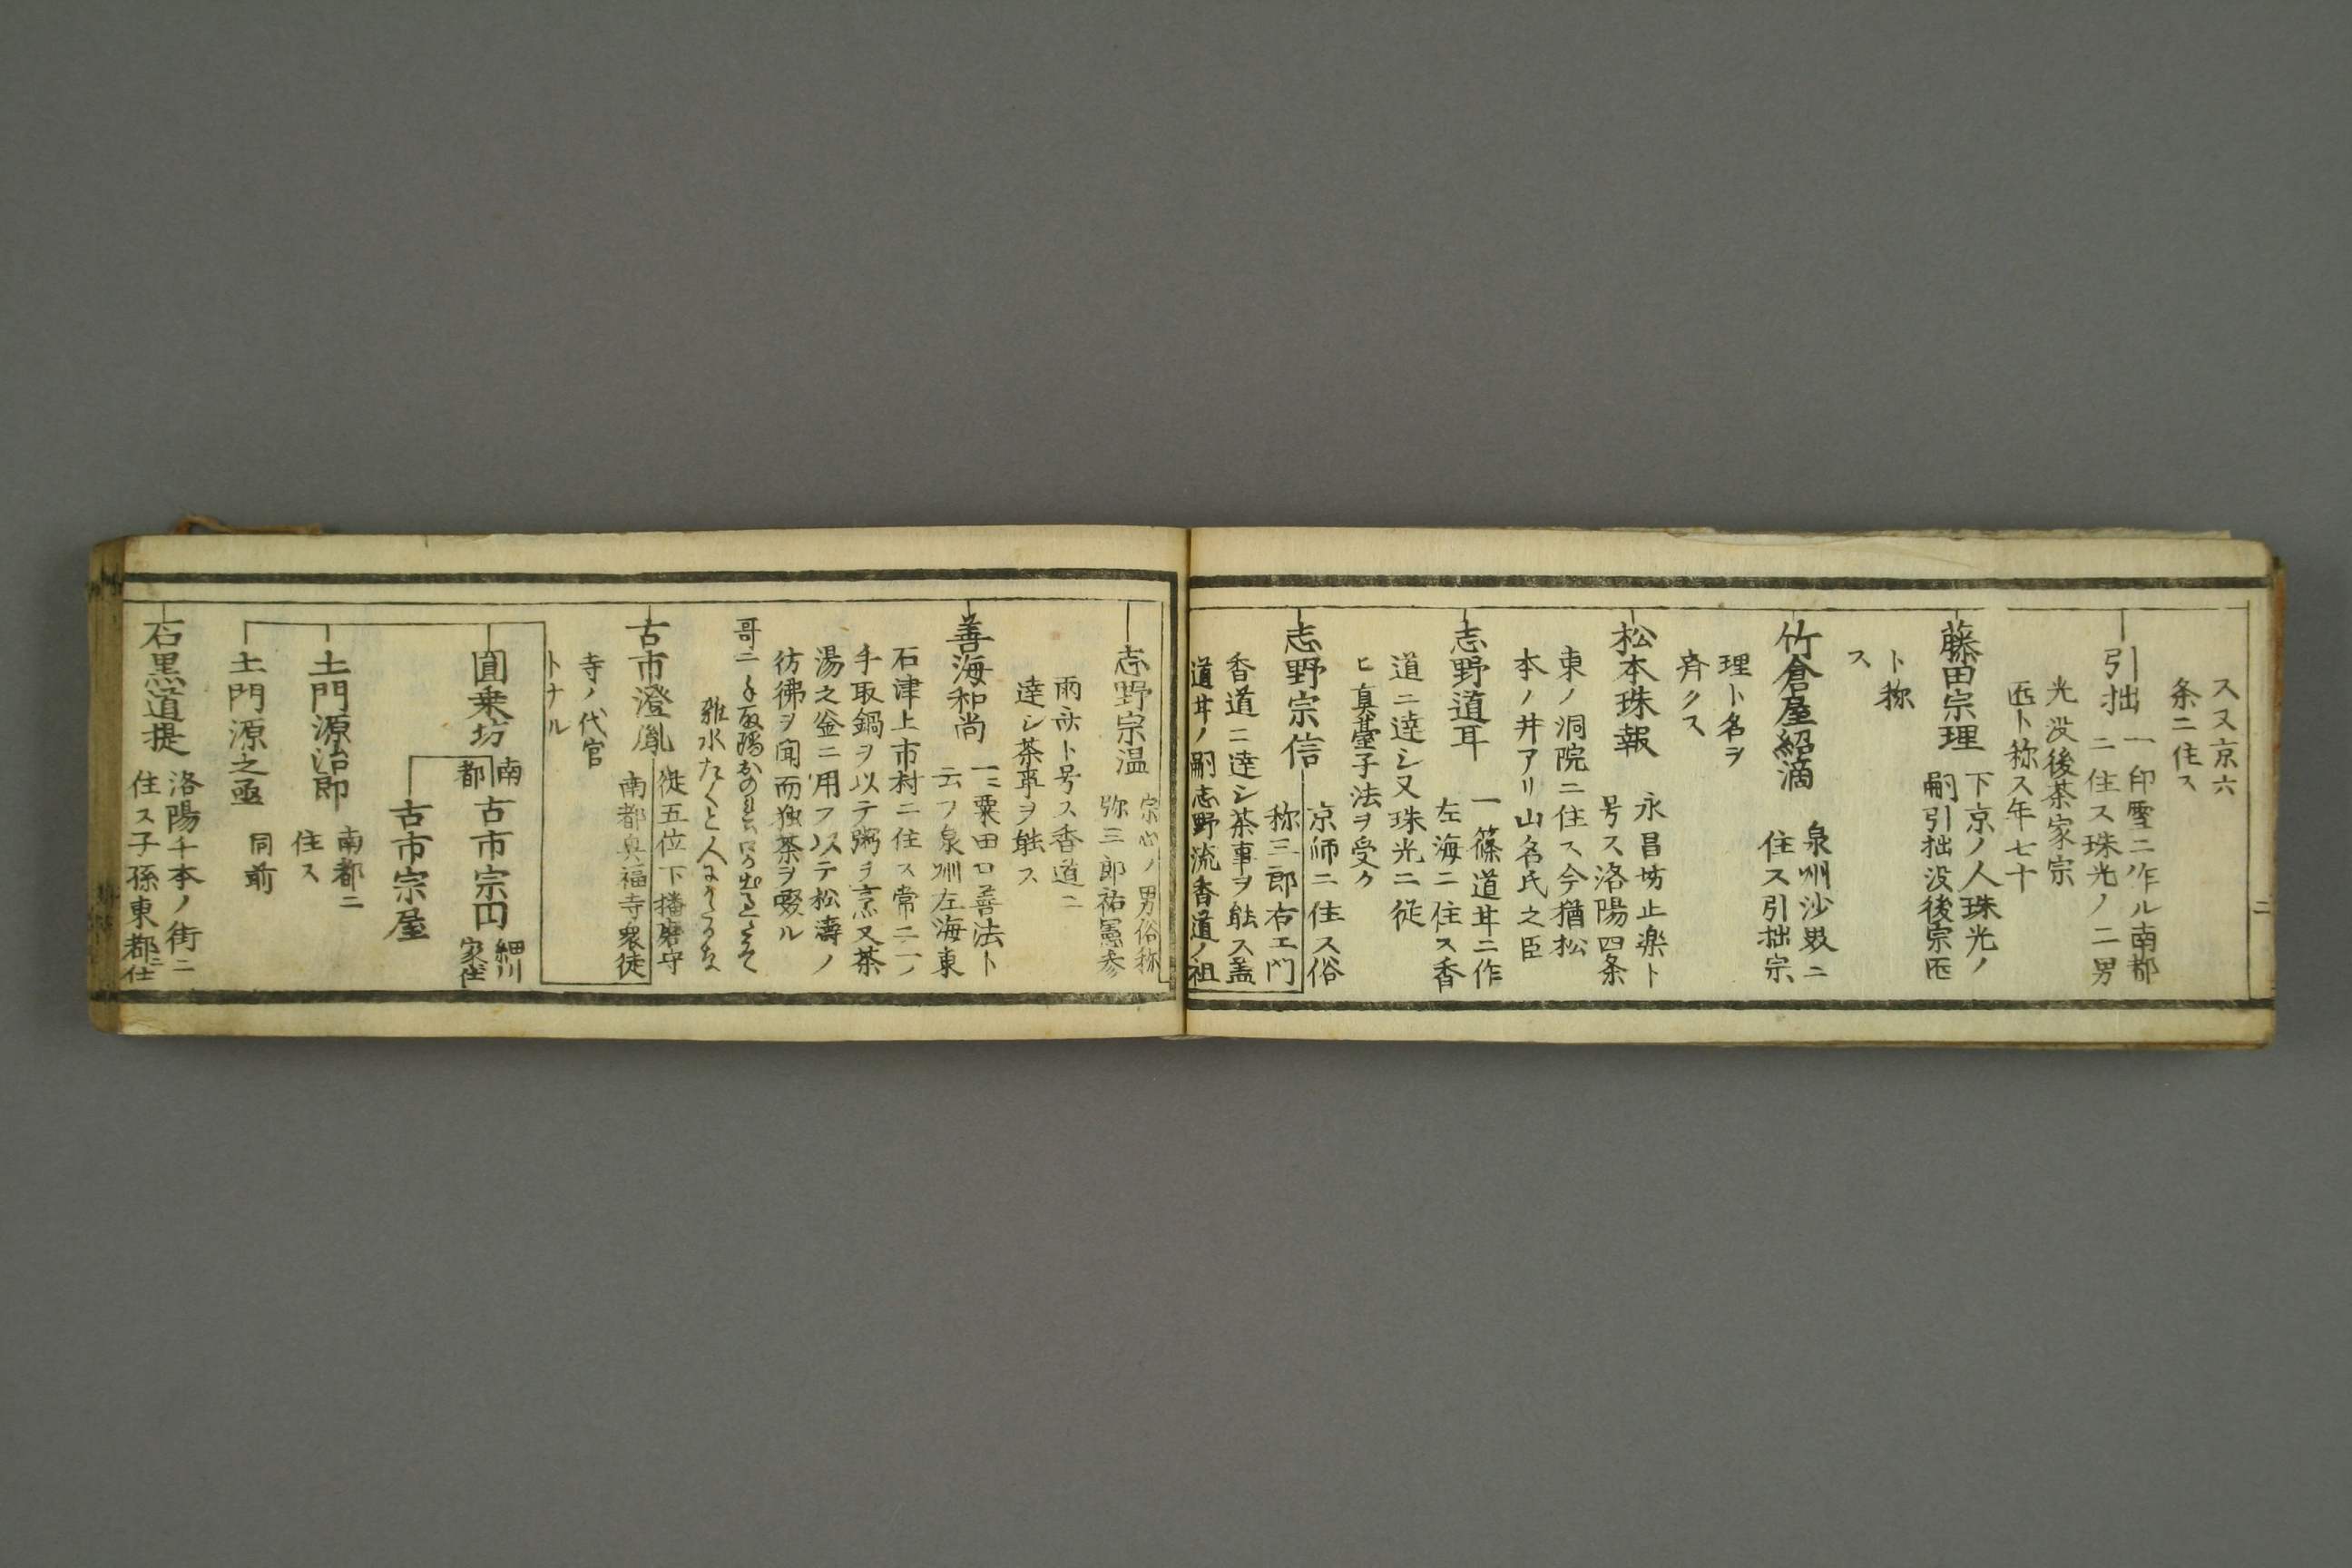 ス又京六
条ニ住ス
引拙
一印雪ニ作ル南都
ニ住ス珠光ノ二男
光没後茶家宗
匠ト称ス年七十
藤田宗理
下京ノ人珠光ノ
嗣引拙没後宗匠
ト称
ス
竹倉屋紹滴
泉州沙界ニ
住ス引拙宗
理ト名ヲ
斉クス
松本珠報
永昌坊止楽ト
号ス洛陽四条
東ノ洞院ニ住ス今猶松
本ノ井アリ山名氏之臣
志野道耳
一篠道耳ニ作
左海ニ住ス香
道ニ達シ又珠光ニ従
ヒ真䑓子法ヲ受ク
志野宗信
京师ニ住ス俗
称三郎右エ門
香道ニ達シ茶事ヲ能ス盖
道耳ノ嗣志野流香道ノ祖
志野宗温
宗心ノ男俗称
弥三郎祐憲参
雨ト号ス香道ニ
達シ茶事ヲ能ス
善海和尚
一ニ粟田口善法ト
云フ泉州左海東
石津上市村ニ住ス常ニ一ノ
手取鍋ヲ以テ粥ヲ烹又茶
湯之釜ニ用フ以テ松濤ノ
彷彿ヲ聞而独茶ヲ啜ル
哥ニ手取
雑水たくと人に
古市澄胤
従五位下播磨守
南都興福寺衆徒
寺ノ代官
トナル
圓乗坊
南
都
古市宗円
細川
家仕
古市宗屋
土門源治郎
南都ニ
住ス
土門源之亟
同前
石黒道提
洛陽千本ノ街ニ
住ス子孫東都ニ仕
二